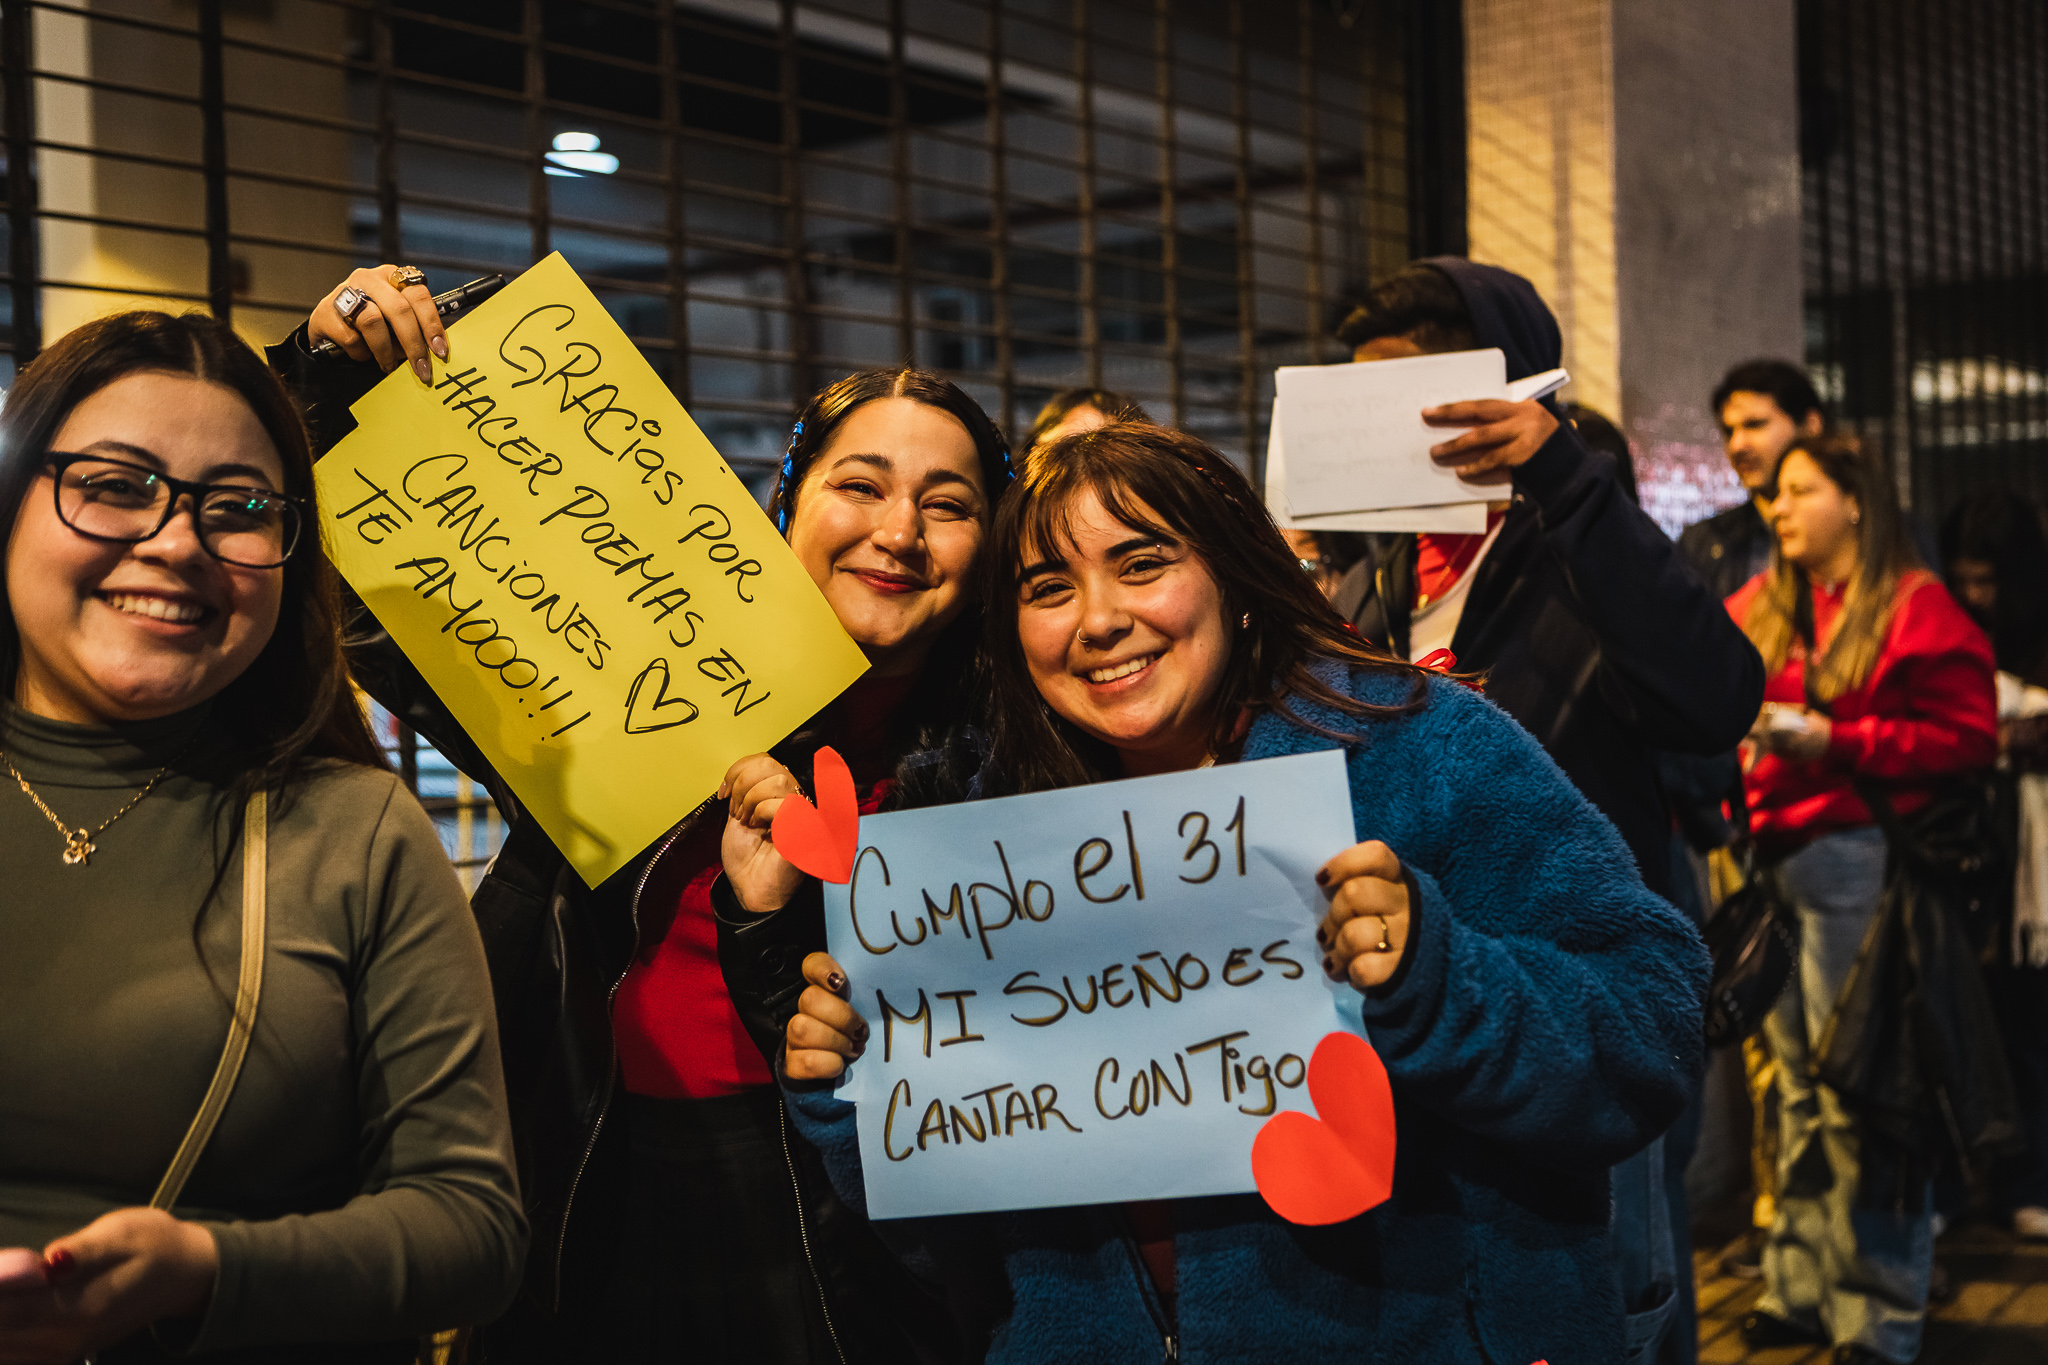 GRACias POR
HACER POEMAS EN
CANCiONES
TE AMOOO!!!
Cumplo el 31
MI SUEÑO ES
CANTAR CON Tigo